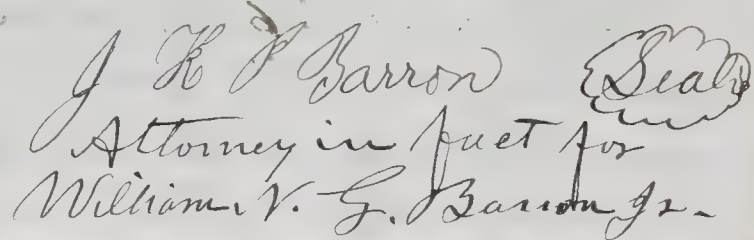 J K P Barron Seal
Attorney in fact for
William. V. G. Barron Jr.